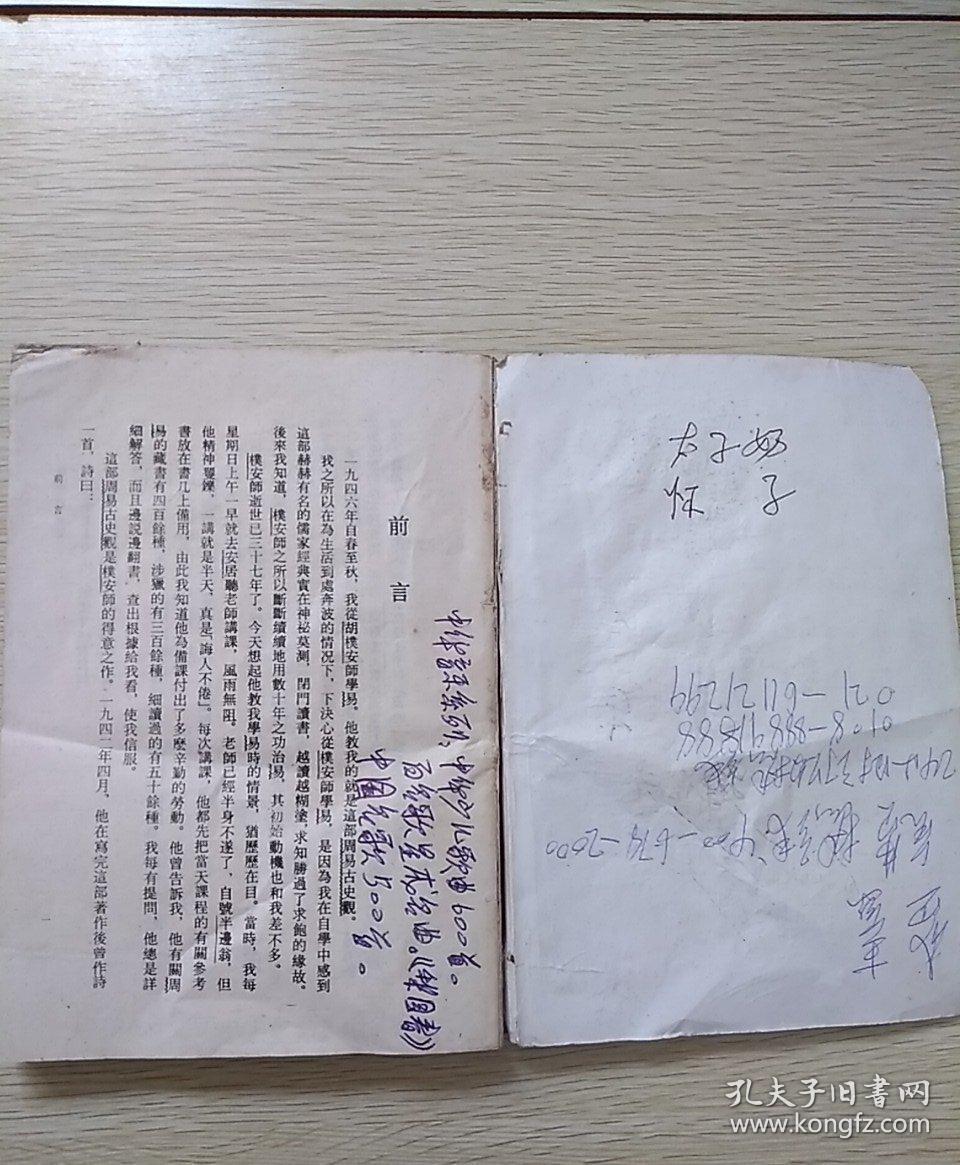 前言
一九四六年自春至秋，我從胡樸安師學易。他教我的就是這部周易古史觀。
我之所以在為生活到處奔波的情況下，下決心從樸安師學易，是因為我在自學中感到
這部赫赫有名的儒家經典實在神祕莫測，閉門讀書，越讀越糊塗，求知勝過了求飽的緣故。
後來我知道，樸安師之所以斷斷續續地用數十年之功治易，其初始動機也和我差不多。
樸安師逝世已三十七年了。今天想起他教我學易時的情景，猶歷歷在目。當時，我每
星期日上午一早就去安居聽老師講課，風雨無阻。老師已經半身不遂了，自號半邊翁，但
他精神矍鑠，一講就是半天，真是「誨人不倦」。每次講課，他都先把當天課程的有關參考
書放在書几上備用，由此我知道他為備課付出了多麼辛勤的勞動。他曾告訴我，他有關周
易的藏書有四百餘種，涉獵的有三百餘種，細讀過的有五十餘種。我每有提問，他總是詳
細解答，而且邊説邊翻書，查出根據給我看，使我信服。
這部周易古史觀是樸安師的得意之作。一九四二年四月，他在寫完這部著作後曾作詩
一首，詩曰：
前言
一
儿歌曲600首。
中国儿歌500首。
太子
怀子
021-61121299
0108-88891888
孔夫子旧书网
www.kongfz.com